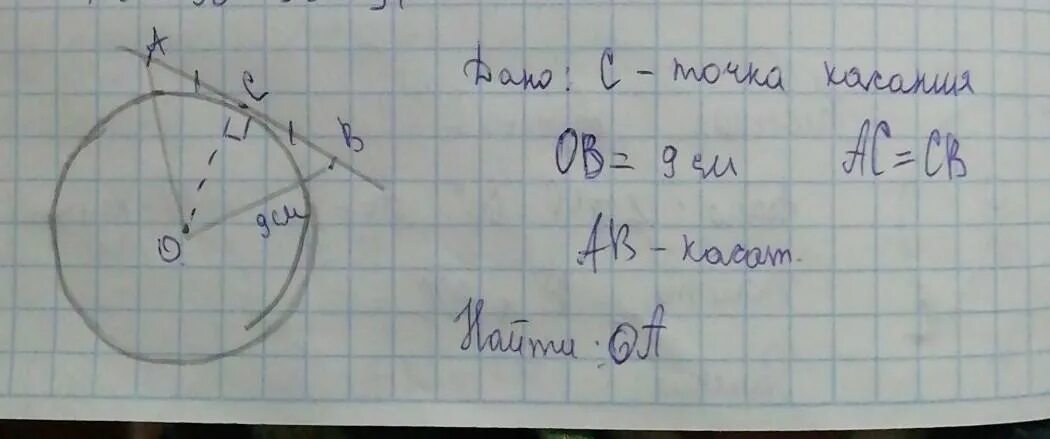 A
C
B
O
9 см
Дано: С - точка касания
OB = 9 см AC = CB
AB - касат.
Найти: OA